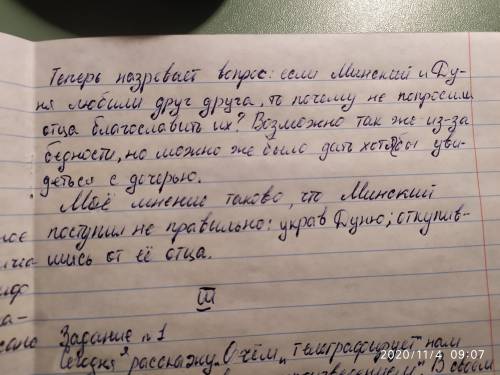 Теперь назревает вопрос: если Минский и Ду-
ня любили друг друга, то почему не попросили
отца благославить их? Возможно так же из-за
бедности, но можно же было дать хотя бы уви-
деться с дочерью.
Моё мнение таково, что Минский
поступил не правильно: украв Дуню; откупив-
шись от её отца.
III
Задание №1
Сегодня я расскажу. О чём "телеграфирует" нам
В своём
2020/11/4 09:07